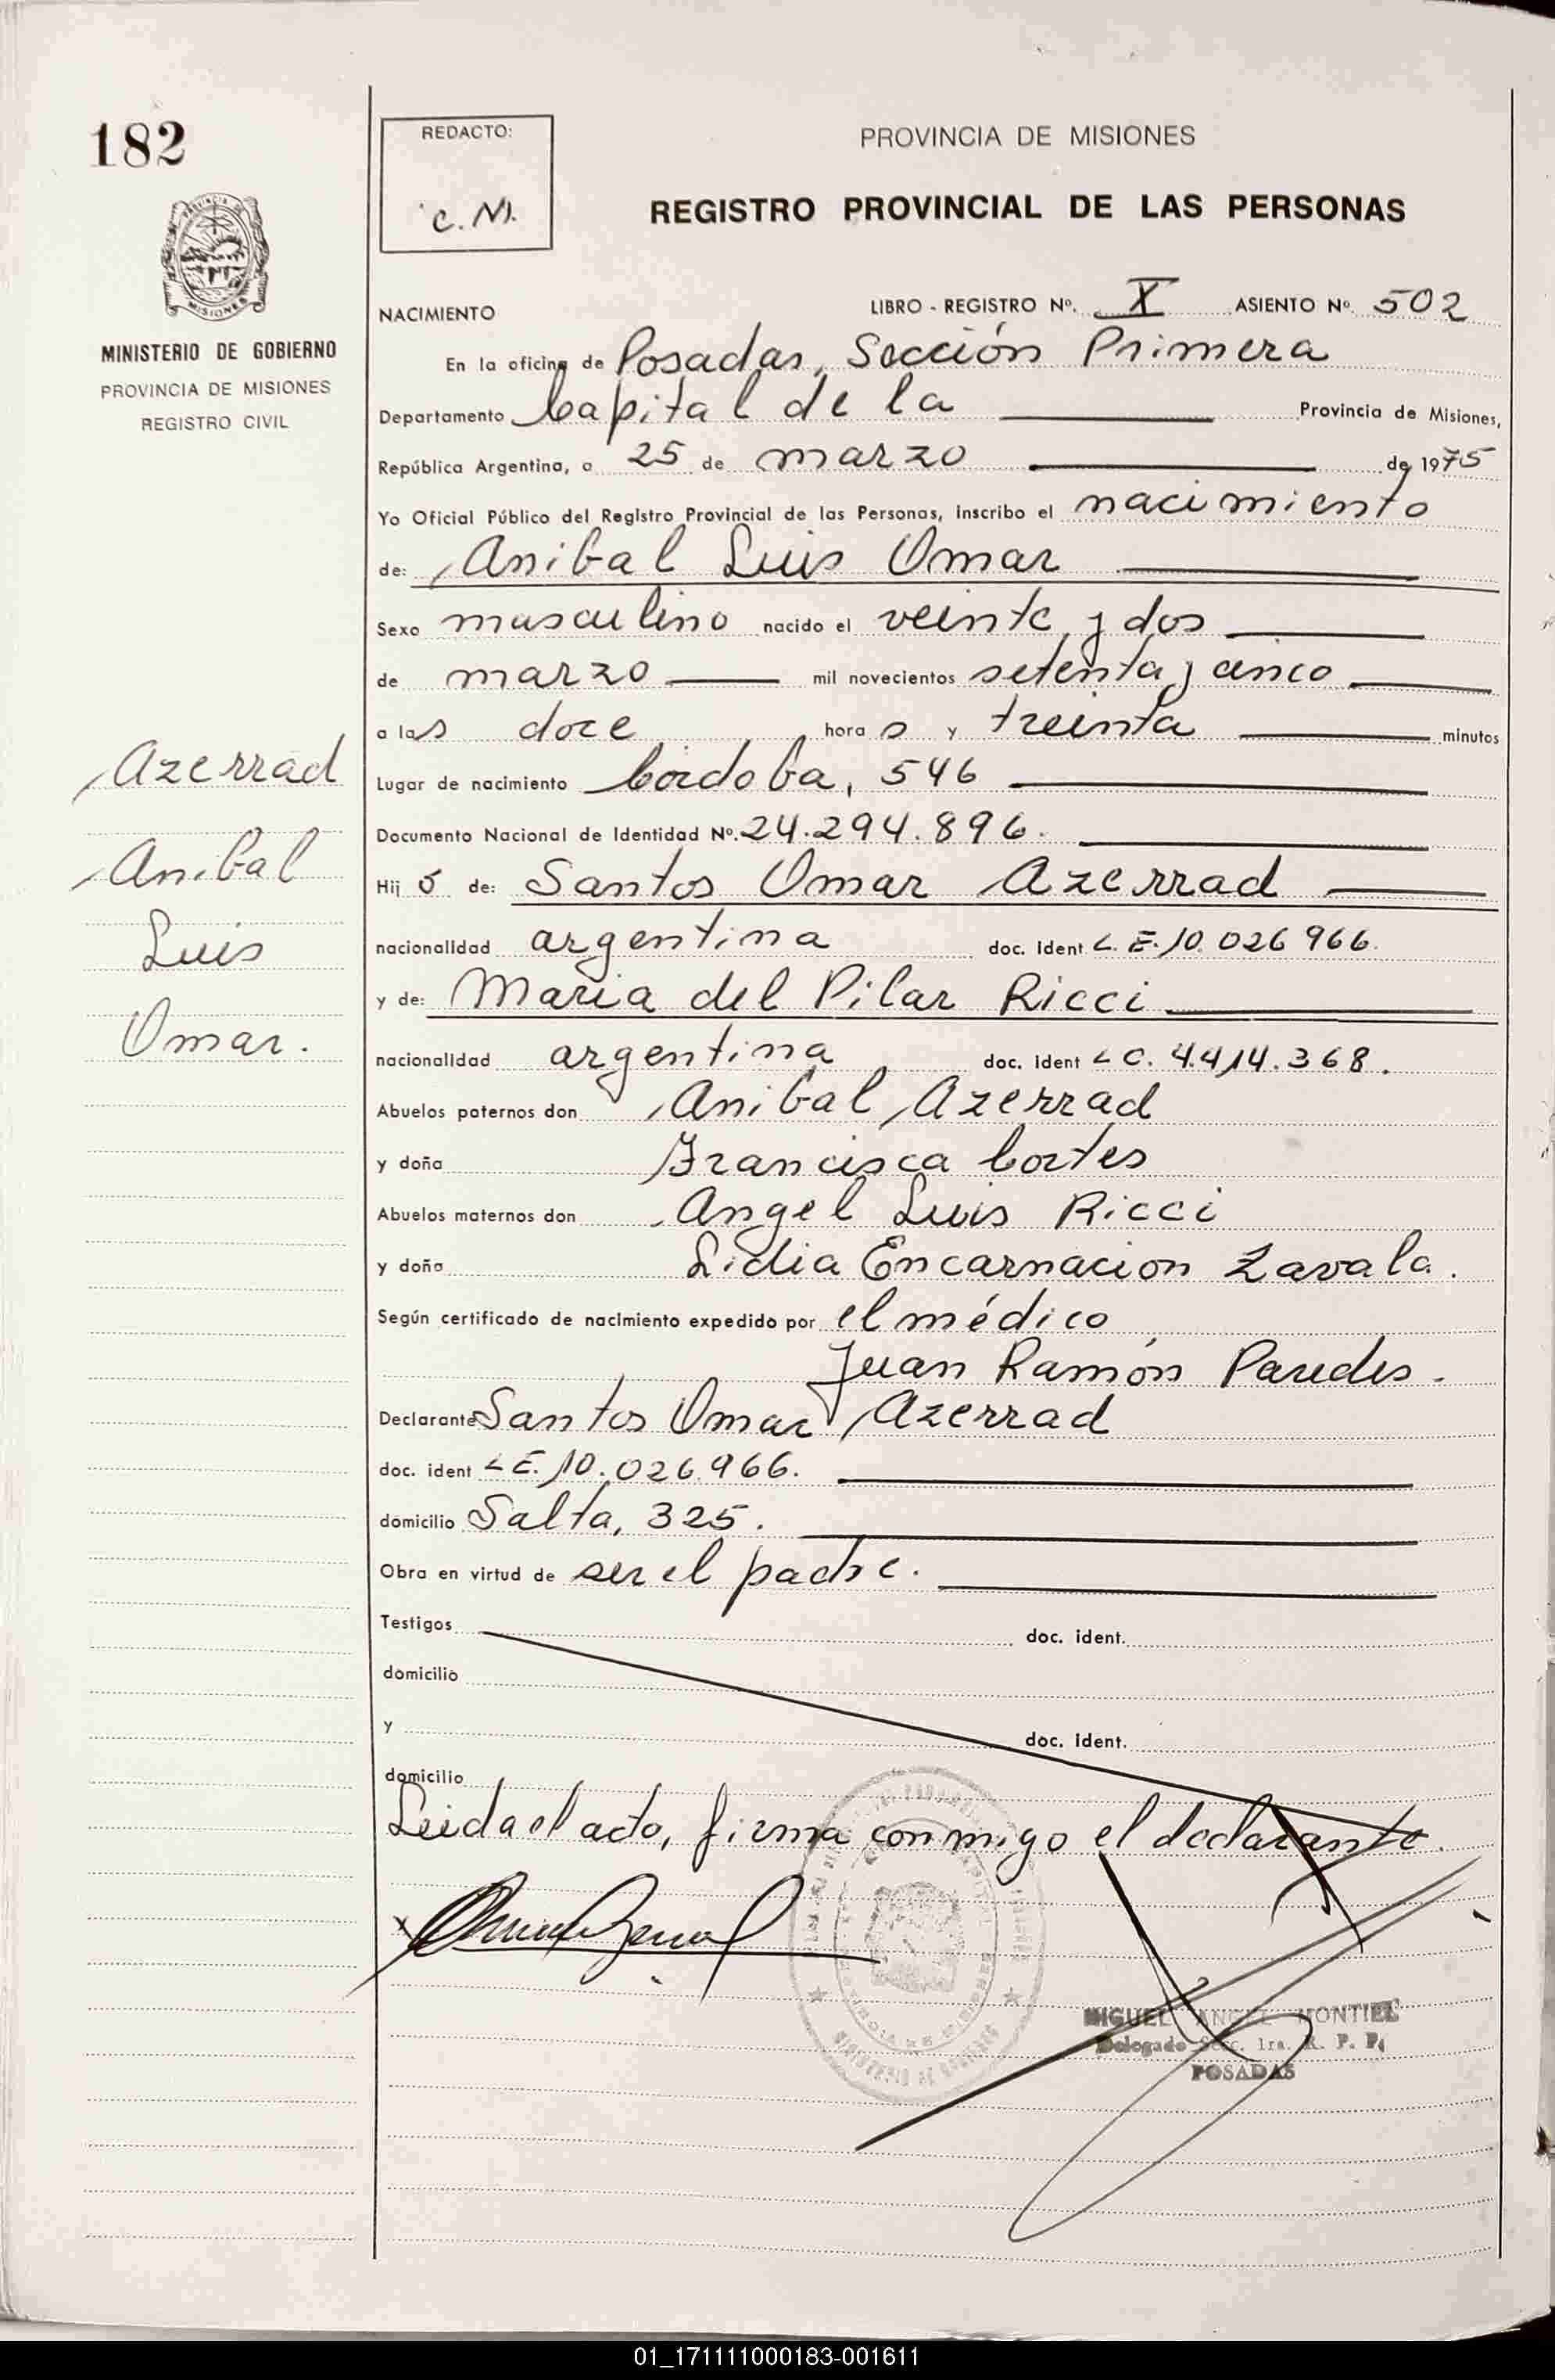 182
REDACTO:
C. M.
PROVINCIA DE MISIONES
REGISTRO PROVINCIAL DE LAS PERSONAS
MISIONES
MINISTERIO DE GOBIERNO
PROVINCIA DE MISIONES
REGISTRO CIVIL
NACIMIENTO LIBRO - REGISTRO Nº. X ASIENTO Nº 502
En la oficina de Posadas, Sección Primera
Departamento Capital de la Provincia de Misiones,
República Argentina, a 25 de marzo de 1975
Yo Oficial Público del Registro Provincial de las Personas, inscribo el nacimiento
de: Anibal Luis Omar
Sexo masculino nacido el veinte y dos
de marzo mil novecientos setenta y cinco
a las doce hora s y treinta minutos
Azerrad
Anibal
Luis
Omar.
Lugar de nacimiento Córdoba, 546
Documento Nacional de Identidad Nº. 24.294.896.
Hij o de: Santos Omar Azerrad
nacionalidad argentina doc. ident L.E. 10.026 966.
y de: Maria del Pilar Ricci
nacionalidad argentina doc. ident L C. 4.414.368.
Abuelos paternos don Anibal Azerrad
y doña Francisca Cortes
Abuelos maternos don Angel Luis Ricci
y doña Lidia Encarnacion Zavala.
Según certificado de nacimiento expedido por el médico
Juan Ramón Paredes.
Declarante Santos Omar Azerrad
doc. ident L E. 10.026.966.
domicilio Salta, 325.
Obra en virtud de ser el padre.
Testigos doc. ident.
domicilio
y doc. ident.
domicilio
Leida el acta, firma conmigo el declarante.
MIGUEL ANGEL MONTIEL
Delegado Secc. 1ra. R. P. P.
POSADAS
01_171111000183-001611